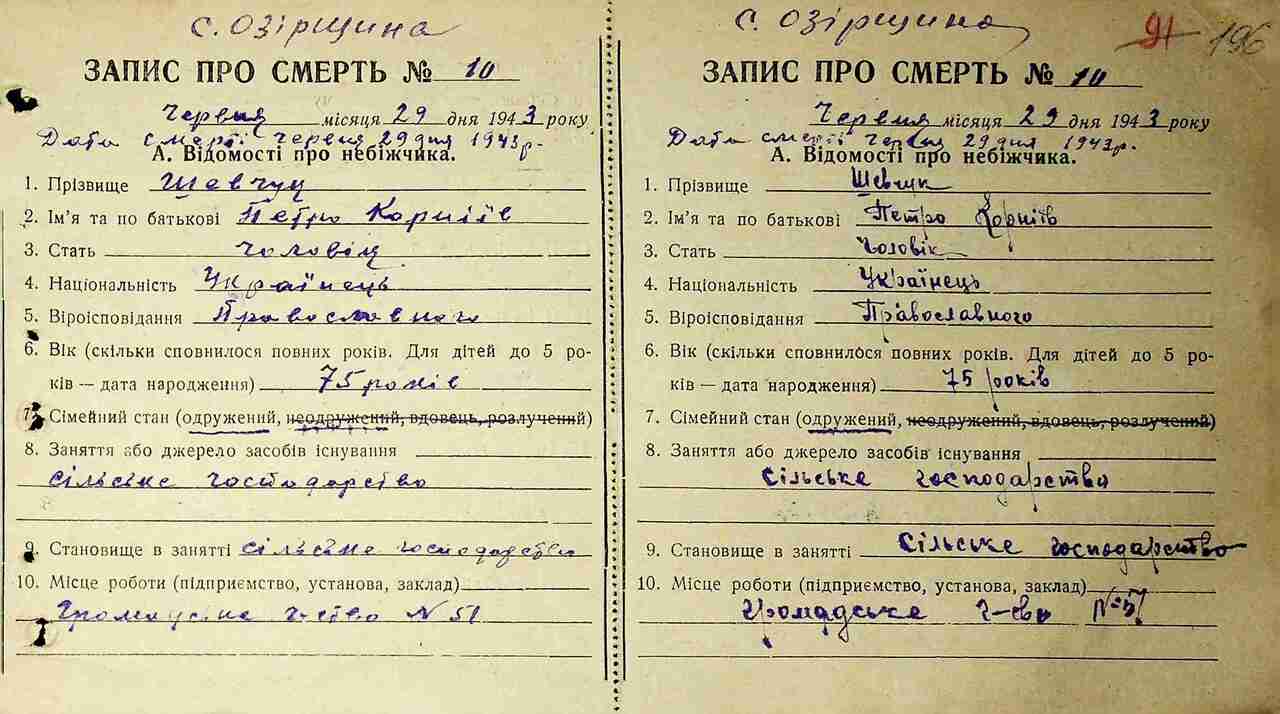 с. Озірщина
ЗАПИС ПРО СМЕРТЬ № 10
Червня місяця 29 дня 1943 року
Дата смерті Червня 29 дня 1943 р.
А. Відомості про небіжчика.
1. Прізвище Шевчук
2. Ім'я та по батькові Петро Корніїв
3. Стать чоловік
4. Національність Українець
5. Віроісповідання Православного
6. Вік (скільки сповнилося повних років. Для дітей до 5 ро-
ків — дата народження) 75 років
7. Сімейний стан (одружений, неодружений, вдовець, розлучений)
8. Заняття або джерело засобів існування
сільське господарство
9. Становище в занятті сільське господарство
10. Місце роботи (підприємство, установа, заклад)
Громадське г-ство N 51
с. Озірщина
91 196
ЗАПИС ПРО СМЕРТЬ № 10
Червня місяця 29 дня 1943 року
Дата смерті Червня 29 дня 1943 р.
А. Відомості про небіжчика.
1. Прізвище Шевчук
2. Ім'я та по батькові Петро Корніїв
3. Стать Чоловік
4. Національність Українець
5. Віроісповідання Православного
6. Вік (скільки сповнилося повних років. Для дітей до 5 ро-
ків — дата народження) 75 років
7. Сімейний стан (одружений, неодружений, вдовець, розлучений)
8. Заняття або джерело засобів існування
Сільське господарство
9. Становище в занятті Сільське господарство
10. Місце роботи (підприємство, установа, заклад)
Громадське г-во № 51